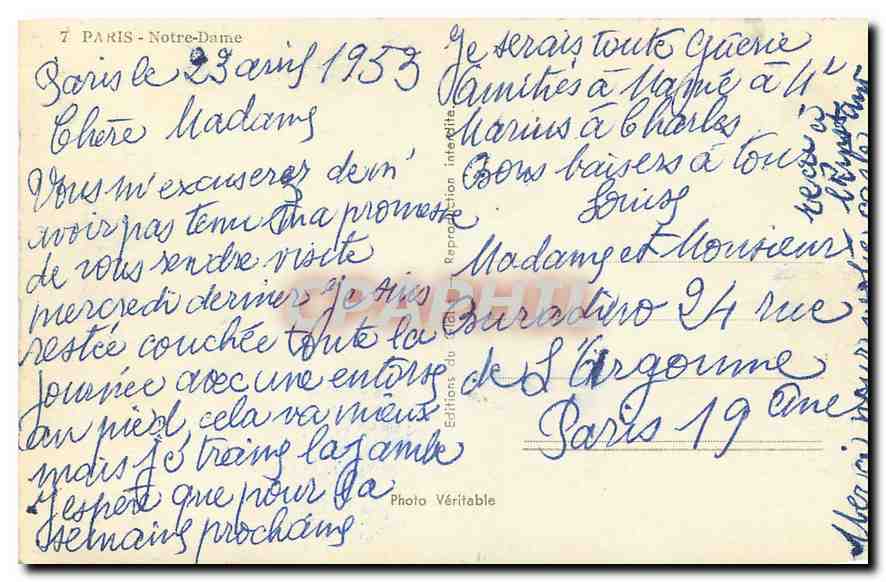 7 PARIS - Notre-Dame
Paris le 23 avril 1953
Chère Madame
Vous m'excuserez de m'
avoir pas tenu ma promesse
de vous rendre visite
mercredi dernier je suis
restée couchée toute la
journée avec une entorse
au pied, cela va mieux
mais je traine la jambe
j'espère que pour la
semaine prochaine
Je serais toute guérie
Amitiés à Mamé à Mr
Marius à Charles
Bons baisers à tous
Louise
Madame et Monsieur
24 rue
de L'Argonne
Paris 19 ème
Merci pour votre carte
reçu à
Editions du
Reproduction interdite.
Photo Véritable
CPAPHIL